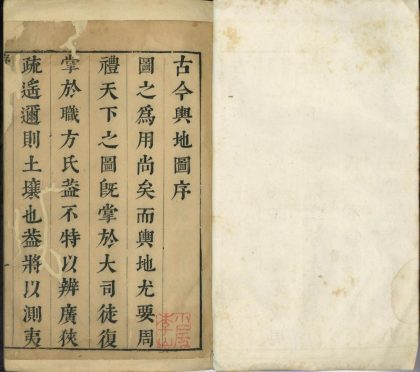 古今輿地圖序
圖之為用尚矣而輿地尤要周
禮天下之圖旣掌於大司徒復
掌於職方氏葢不特以辨廣狹
疏遥邇則土壤也葢將以測夷